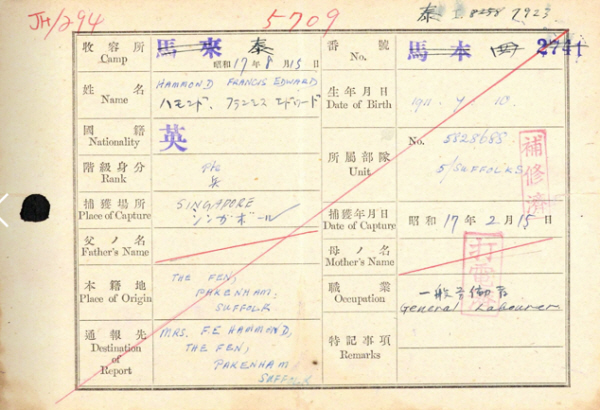 JH/294
5709
泰 I 8258 7923
收容所 Camp
馬來 泰
昭和 17年 8月 15日
番號 No.
馬本 四 2741
姓名 Name
HAMMOND FRANCIS EDWARD
ハモンド、フランシス エドワード
生年月日 Date of Birth
1911. 7. 10.
國籍 Nationality
英
所屬部隊 Unit
No. 5828688
5/SUFFOLKS
補修済
階級身分 Rank
Pte
兵
捕獲場所 Place of Capture
SINGAPORE
シンガポール
捕獲年月日 Date of Capture
昭和 17年 2月 15日
父ノ名 Father's Name
母ノ名 Mother's Name
本籍地 Place of Origin
THE FEN,
PAKENHAM,
SUFFOLK
職業 Occupation
一般労働者
General Labourer
通報先 Destination of Report
MRS. F.E HAMMOND,
THE FEN,
PAKENHAM
SUFFOLK
特記事項 Remarks